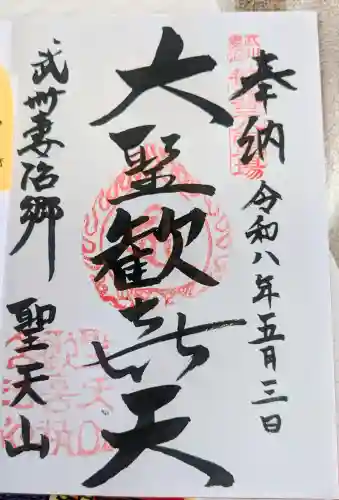 奉納
令和八年五月三日
大聖歓喜天
武州妻沼郷
聖天山